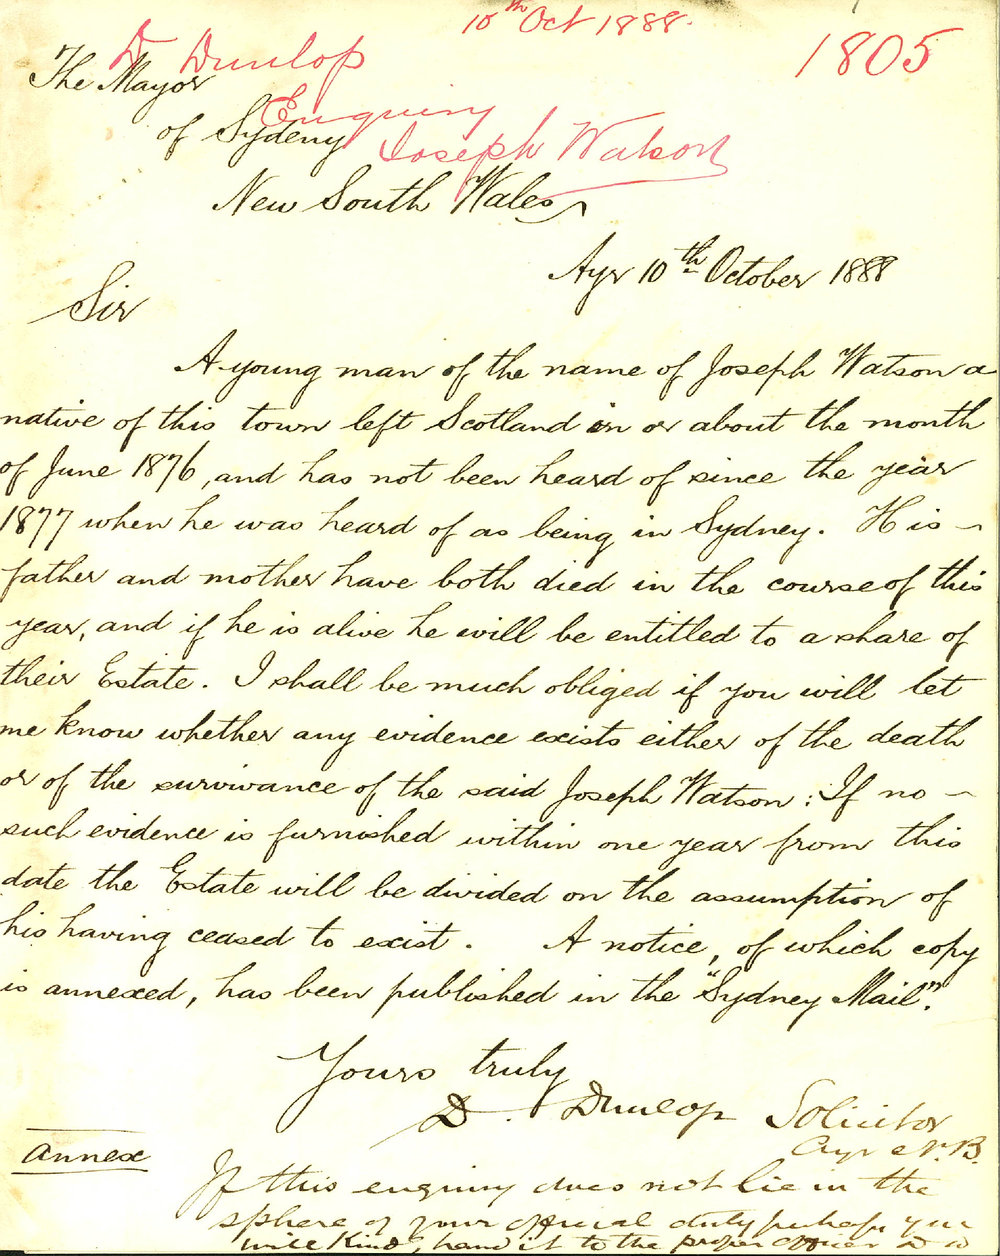 10th Oct 1888.
1805
D Dunlop
The Mayor
Enquiry
of Sydeny
Joseph Watson
New South Wales
Ayr 10th October 1888
Sir
A young man of the name of Joseph Watson a
native of this town left Scotland in or about the month
of June 1876, and has not been heard of since the year
1877 when he was heard of as being in Sydney. His
father and mother have both died in the course of this
year, and if he is alive he will be entitled to a share of
their Estate. I shall be much obliged if you will let
me know whether any evidence exists either of the death
or of the survivance of the said Joseph Watson: If no
such evidence is furnished within one year from this
date the Estate will be divided on the assumption of
his having ceased to exist. A notice, of which copy
is annexed, has been published in the "Sydney Mail".
Yours truly
D. Dunlop Solicitor
Ayr N.B.
Annex
If this enquiry does not lie in the
sphere of your official duty perhaps you
will kindly hand it to the proper officer